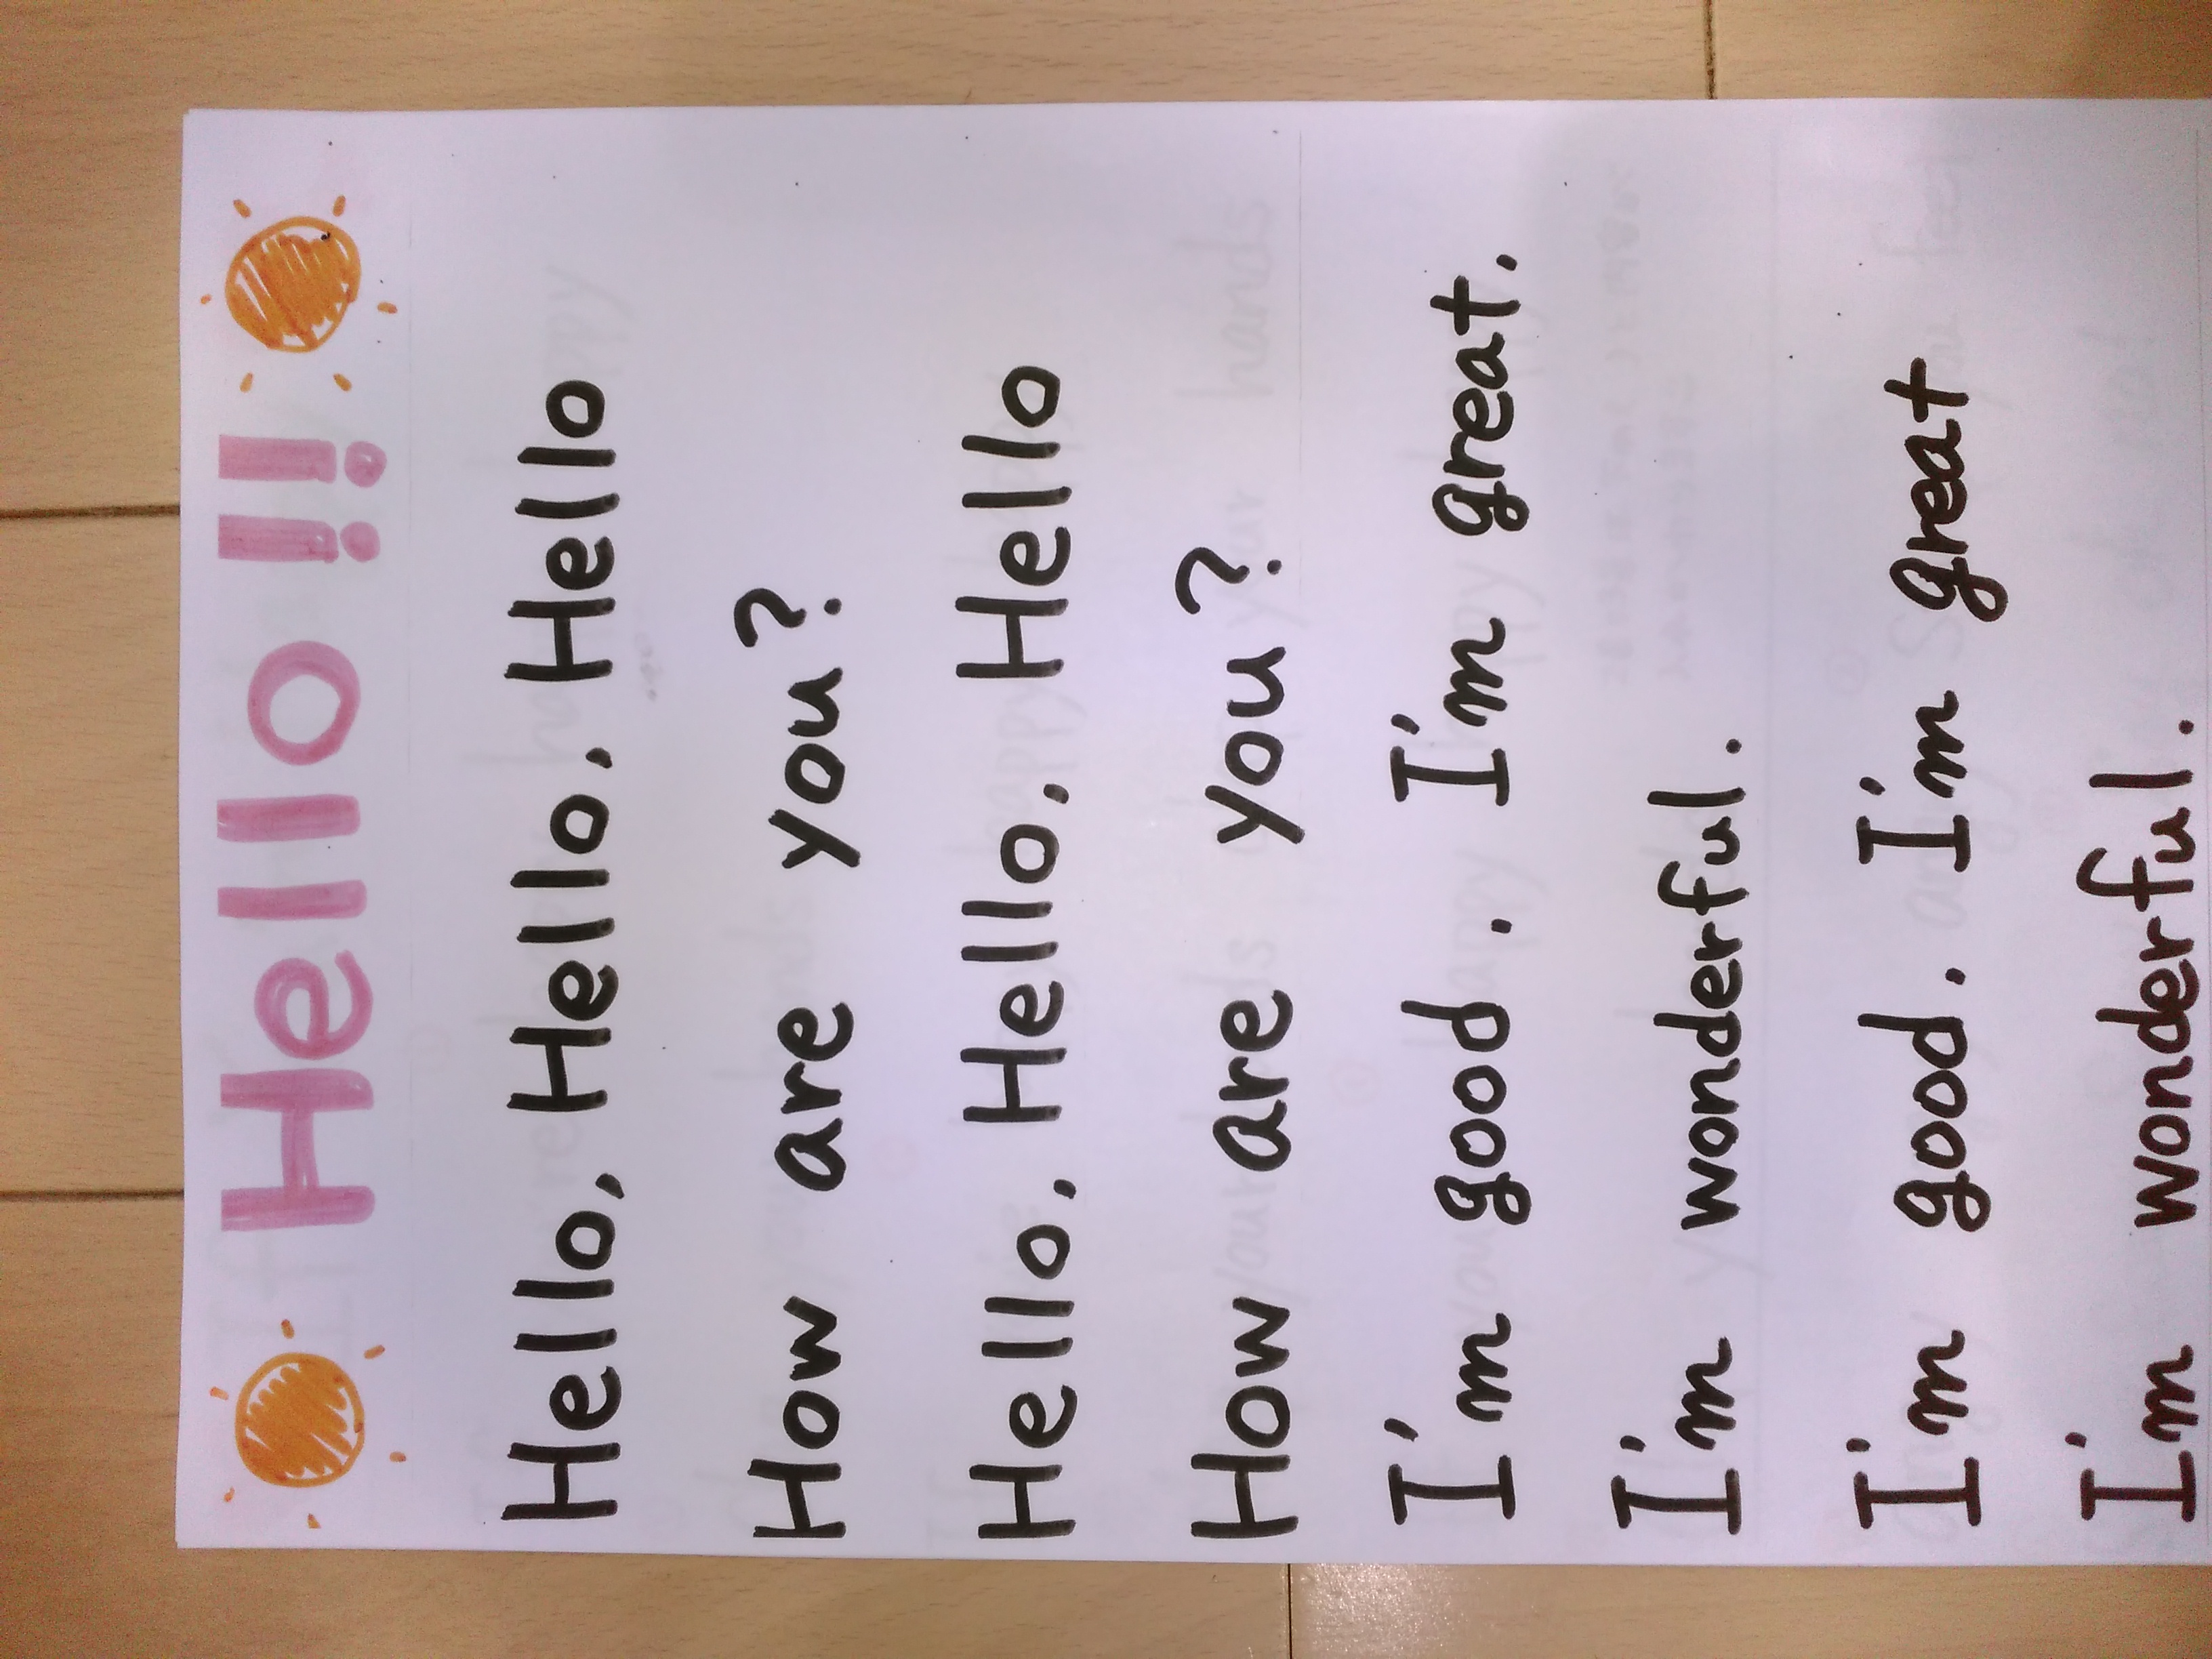 Hello!!
Hello, Hello, Hello
How are you?
Hello, Hello, Hello
How are you?
I'm good. I'm great.
I'm wonderful.
I'm good. I'm great
I'm wonderful.